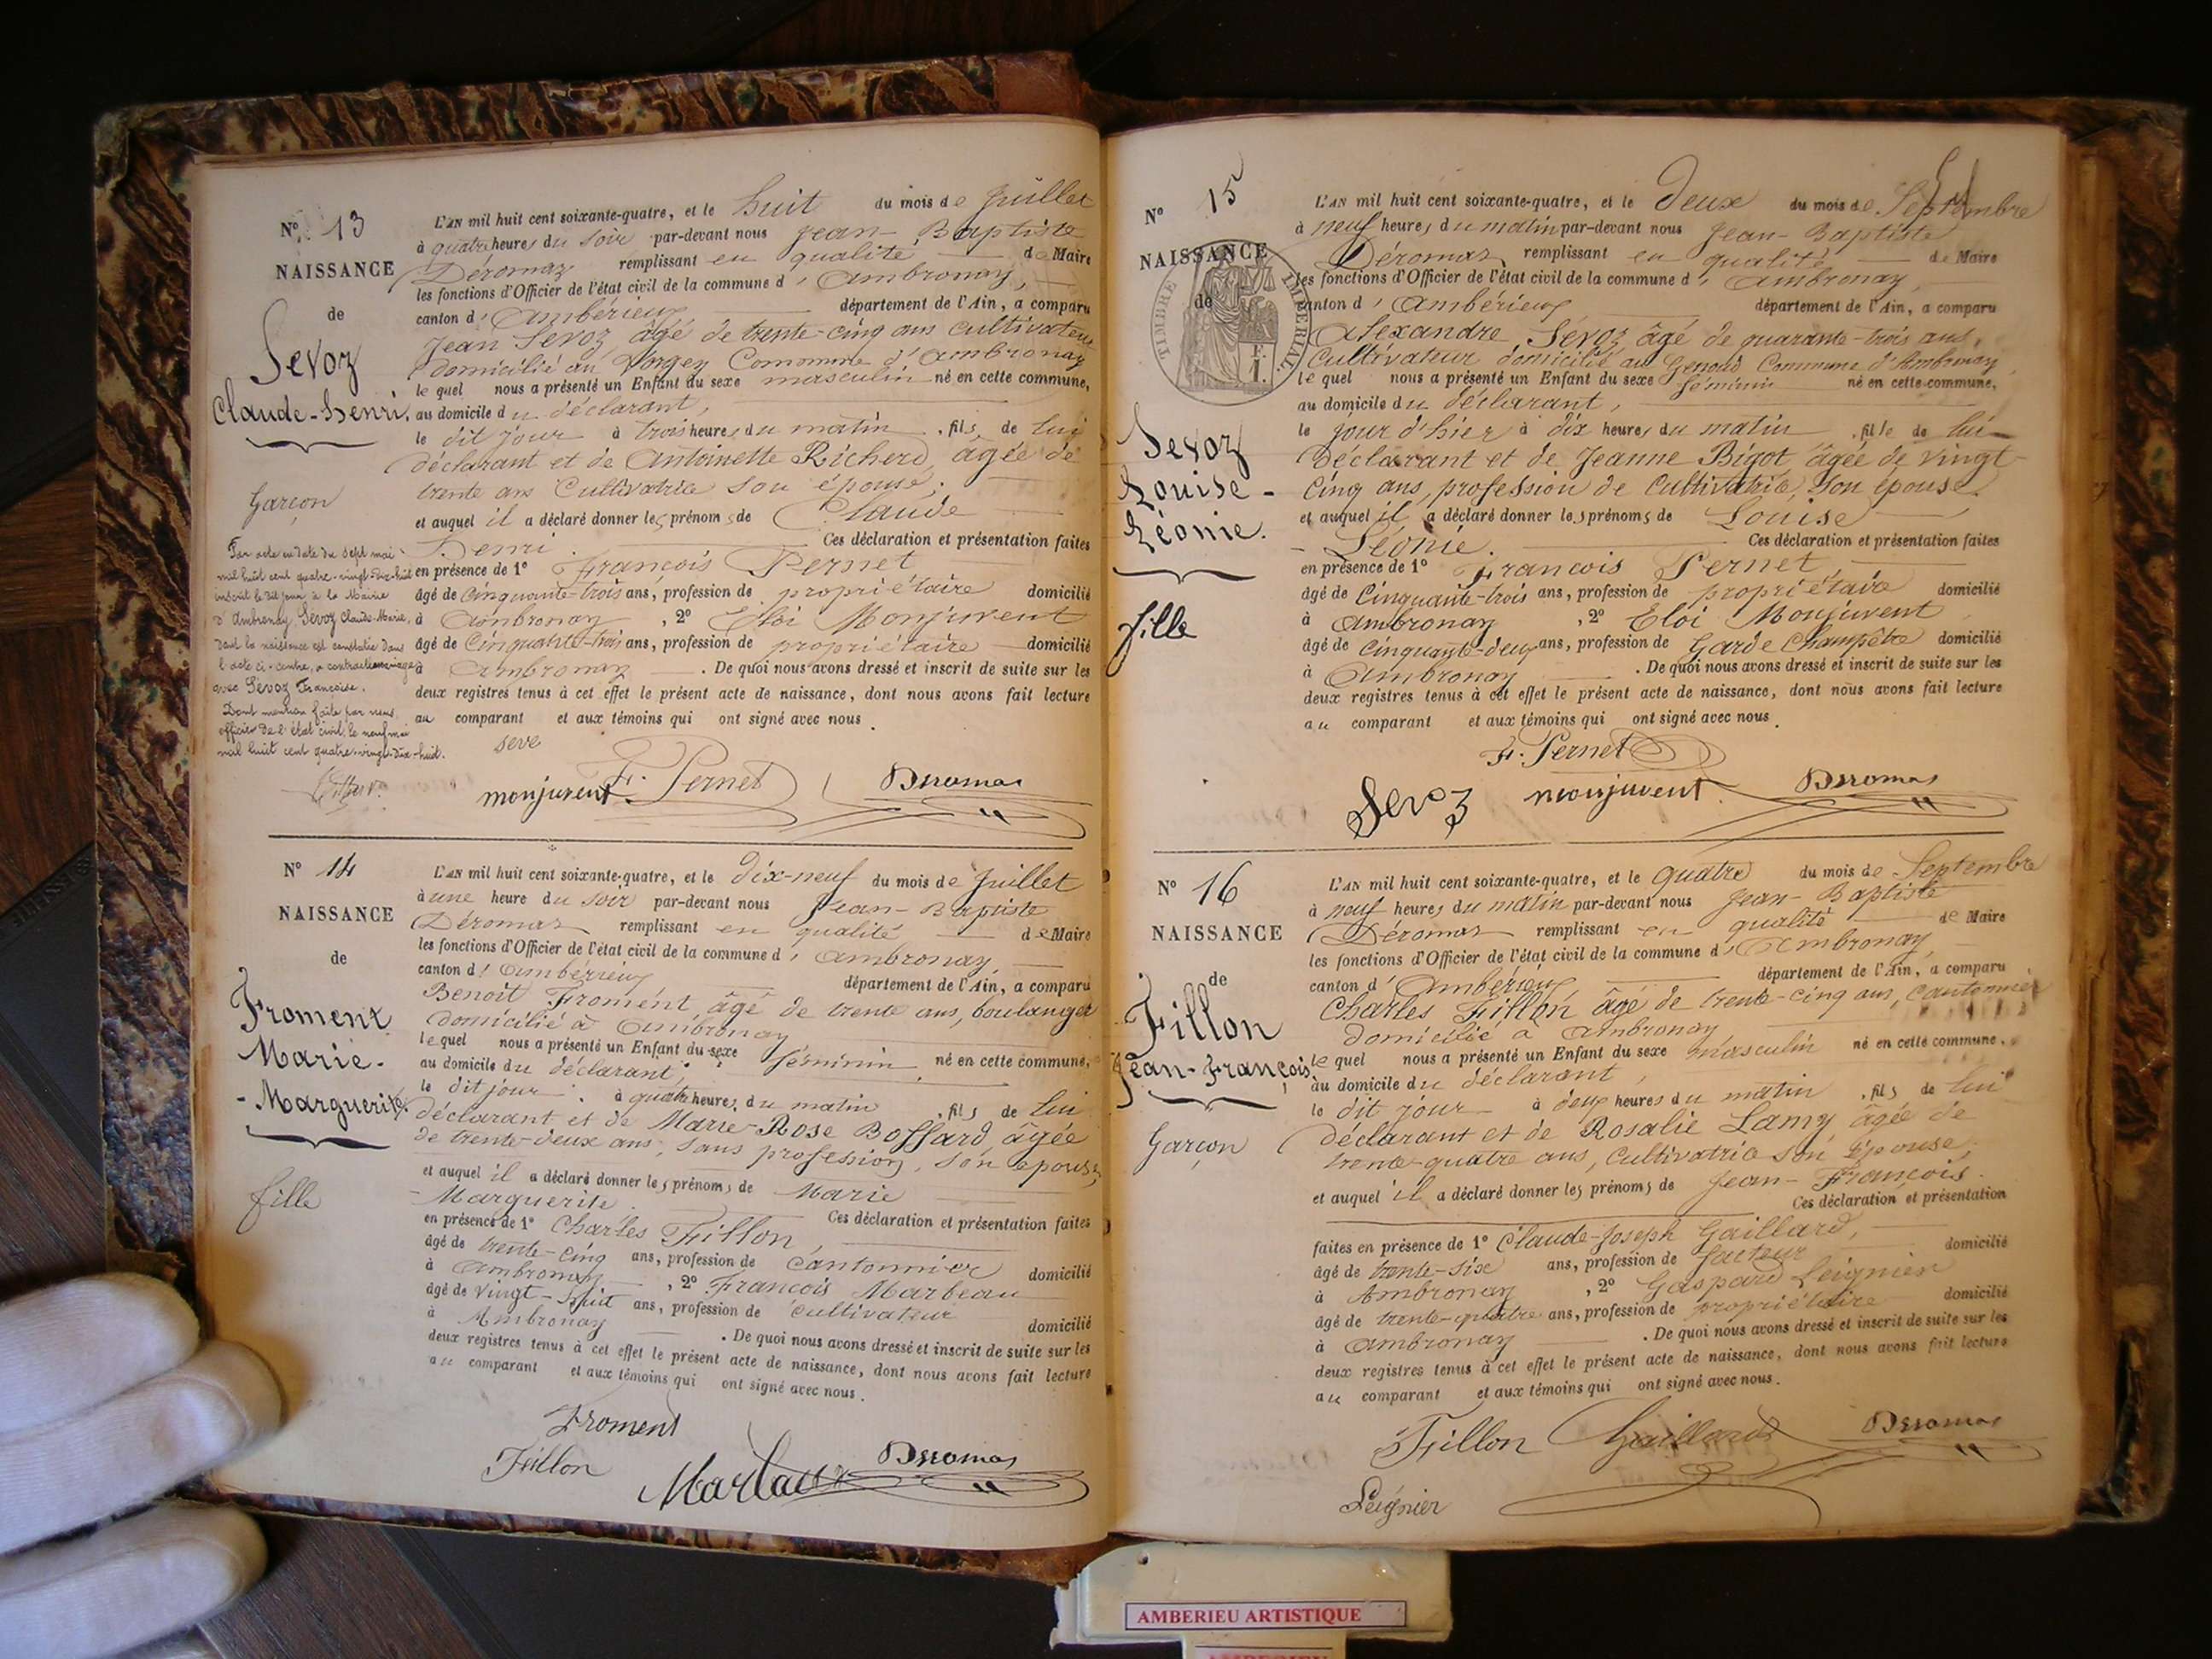 N° 13
NAISSANCE
de
Sevoz
Claude-Henri.
Garçon
Par acte en date du sept mai
mil huit cent quatre-vingt-dix-huit
inscrit le dit jour à la Mairie
d'Ambronay, Sevoz Claude-Marie,
dont la naissance est constatée dans
l'acte ci-contre, a contracté mariage
avec Sevoz Françoise.
Dont mention faite par nous,
officier de l'état civil, le neuf mai
mil huit cent quatre-vingt-dix-huit.
L'AN mil huit cent soixante-quatre, et le huit du mois de Juillet
à quatre heures du soir par-devant nous Jean-Baptiste
Déromas remplissant en qualité de Maire
les fonctions d'Officier de l'état civil de la commune d'Ambronay,
canton d'Ambérieux département de l'Ain, a comparu
Jean Sevoz âgé de trente-cinq ans cultivateur
domicilié au Vorgey Commune d'Ambronay
le quel nous a présenté un Enfant du sexe masculin né en cette commune,
au domicile du déclarant,
le dit jour à trois heures du matin, fils de lui
déclarant et de Antoinette Richerd, âgée de
trente ans Cultivatrice son épouse;
et auquel il a déclaré donner les prénoms de Claude
Henri. Ces déclaration et présentation faites
en présence de 1° François Pernet
âgé de Cinquante-trois ans, profession de propriétaire domicilié
à Ambronay, 2° Eloi Monjuvent
âgé de Cinquante-trois ans, profession de propriétaire domicilié
à Ambronay. De quoi nous avons dressé et inscrit de suite sur les
deux registres tenus à cet effet le présent acte de naissance, dont nous avons fait lecture
au comparant et aux témoins qui ont signé avec nous.
seve
monjuvent F. Pernet Deromas
N° 14
NAISSANCE
de
Froment
Marie-
-Marguerite
fille
L'AN mil huit cent soixante-quatre, et le dix-neuf du mois de Juillet
à une heure du soir par-devant nous Jean-Baptiste
Déromas remplissant en qualité de Maire
les fonctions d'Officier de l'état civil de la commune d'Ambronay,
canton d'Ambérieux département de l'Ain, a comparu
Benoît Froment, âgé de trente ans, boulanger
domicilié à Ambronay
lequel nous a présenté un Enfant du sexe féminin né en cette commune,
au domicile du déclarant,
le dit jour à quatre heures du matin, fils de lui
déclarant et de Marie-Rose Bossard, âgée
de trente-deux ans, sans profession, son épouse,
et auquel il a déclaré donner les prénoms de Marie
-Marguerite. Ces déclaration et présentation faites
en présence de 1° Charles Fillon
âgé de trente-cinq ans, profession de Cantonnier domicilié
à Ambronay, 2° François Marbeau
âgé de vingt-huit ans, profession de cultivateur domicilié
à Ambronay. De quoi nous avons dressé et inscrit de suite sur les
deux registres tenus à cet effet le présent acte de naissance, dont nous avons fait lecture
au comparant et aux témoins qui ont signé avec nous.
Froment
Fillon Deromas
N° 15
NAISSANCE
de
TIMBRE IMPERIAL
Sevoz
Louise-
Léonie.
fille
L'AN mil huit cent soixante-quatre, et le deux du mois de Septembre
à neuf heures du matin par-devant nous Jean-Baptiste
Déromas remplissant en qualité de Maire
les fonctions d'Officier de l'état civil de la commune d'Ambronay,
canton d'Ambérieux département de l'Ain, a comparu
Alexandre Sevoz âgé de quarante-trois ans,
Cultivateur domicilié au Genoud Commune d'Ambronay
le quel nous a présenté un Enfant du sexe féminin né en cette commune,
au domicile du déclarant,
le jour d'hier à dix heures du matin, fille de lui
déclarant et de Jeanne Bigot âgée de vingt-
cinq ans, profession de Cultivatrice, son épouse,
et auquel il a déclaré donner les prénoms de Louise
-Léonie. Ces déclaration et présentation faites
en présence de 1° François Pernet,
âgé de Cinquante-trois ans, profession de propriétaire domicilié
à Ambronay, 2° Eloi Monjuvent
âgé de Cinquante-deux ans, profession de Garde Champêtre domicilié
à Ambronay. De quoi nous avons dressé et inscrit de suite sur les
deux registres tenus à cet effet le présent acte de naissance, dont nous avons fait lecture
au comparant et aux témoins qui ont signé avec nous.
F. Pernet
Sevoz monjuvent Deromas
N° 16
NAISSANCE
de
Fillon
Jean-François
Garçon
L'AN mil huit cent soixante-quatre, et le quatre du mois de Septembre
à neuf heures du matin par-devant nous Jean-Baptiste
Déromas remplissant en qualité de Maire
les fonctions d'Officier de l'état civil de la commune d'Ambronay,
canton d'Ambérieux département de l'Ain, a comparu
Charles Fillon âgé de trente-cinq ans, cantonnier
domicilié à Ambronay,
le quel nous a présenté un Enfant du sexe masculin né en cette commune,
au domicile du déclarant,
le dit jour à deux heures du matin, fils de lui
déclarant et de Rosalie Lamy âgée de
trente-quatre ans, Cultivatrice son épouse,
et auquel il a déclaré donner les prénoms de Jean-François.
Ces déclaration et présentation
faites en présence de 1° Claude-Joseph Gaillard,
âgé de trente-six ans, profession de facteur domicilié
à Ambronay, 2° Gaspard Leignier
âgé de trente-quatre ans, profession de propriétaire domicilié
à Ambronay. De quoi nous avons dressé et inscrit de suite sur les
deux registres tenus à cet effet le présent acte de naissance, dont nous avons fait lecture
au comparant et aux témoins qui ont signé avec nous.
Fillon Gaillard Deromas
Leignier
AMBERIEU ARTISTIQUE